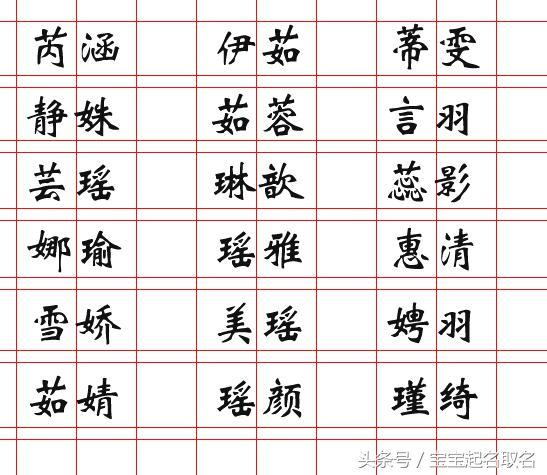 芮涵 伊茹 蒂雯
静姝 茹蓉 言羽
芸瑶 琳歆 蕊影
娜瑜 瑶雅 惠清
雪娇 美瑶 娉羽
茹婧 瑶颜 瑾绮
头条号/宝宝起名取名